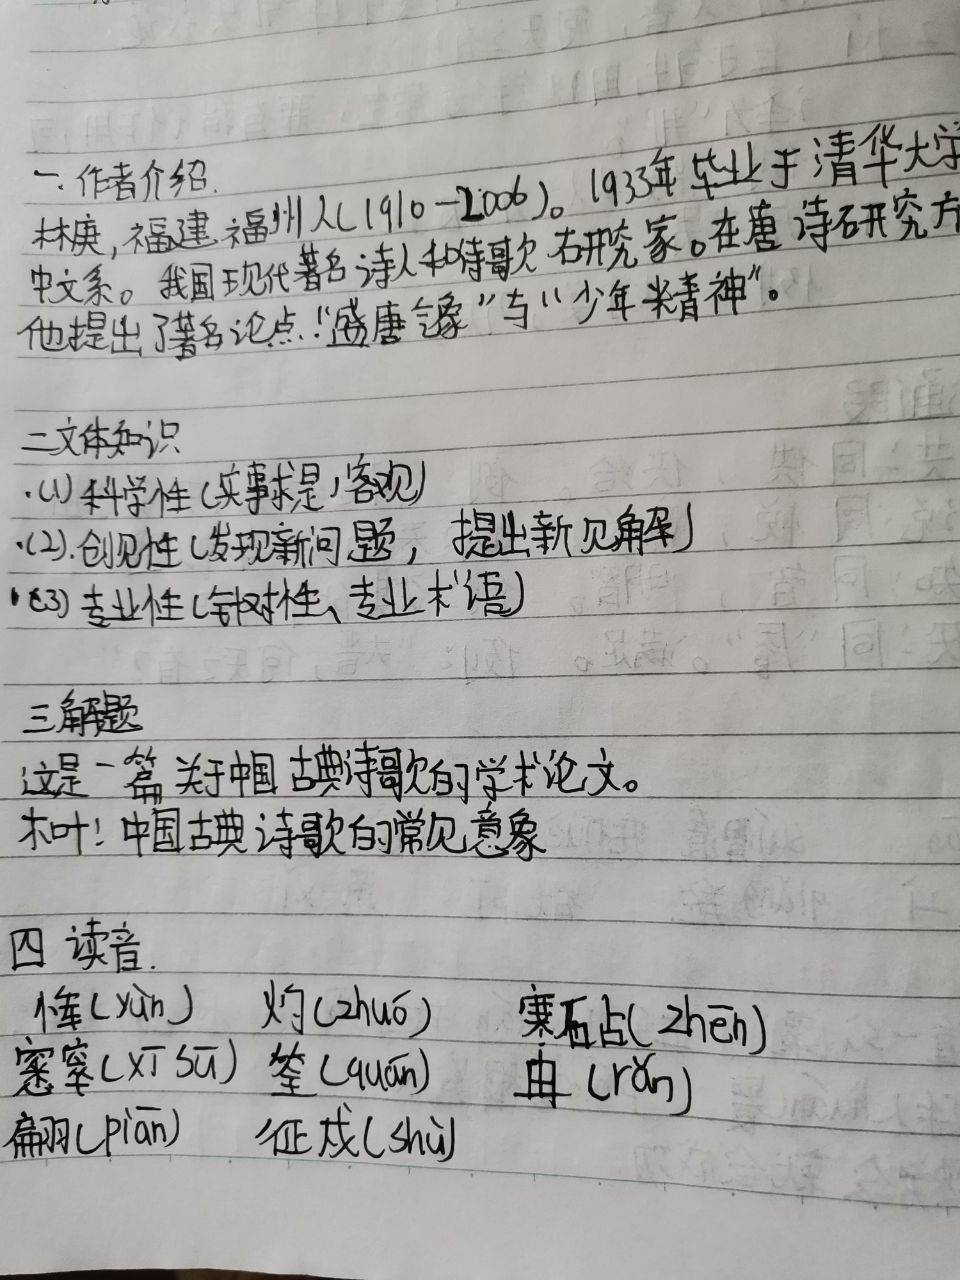 一.作者介绍.
林庚,福建福州人(1910-2006)。1933年毕业于清华大学
中文系。我国现代著名诗人和诗歌研究家。在唐诗研究方
他提出了著名论点:“盛唐气象”与“少年精神”。
二文体知识
·(1)科学性(实事求是,客观)
·(2).创见性(发现新问题,提出新见解)
·(3)专业性(针对性、专业术语)
三解题
这是一篇关于中国古典诗歌的学术论文。
木叶:中国古典诗歌的常见意象
四 读音.
恽(yùn) 灼(zhuó) 寒砧(zhēn)
窸窣(xī sū) 筌(quán) 冉(rǎn)
翩(piān) 征戍(shù)